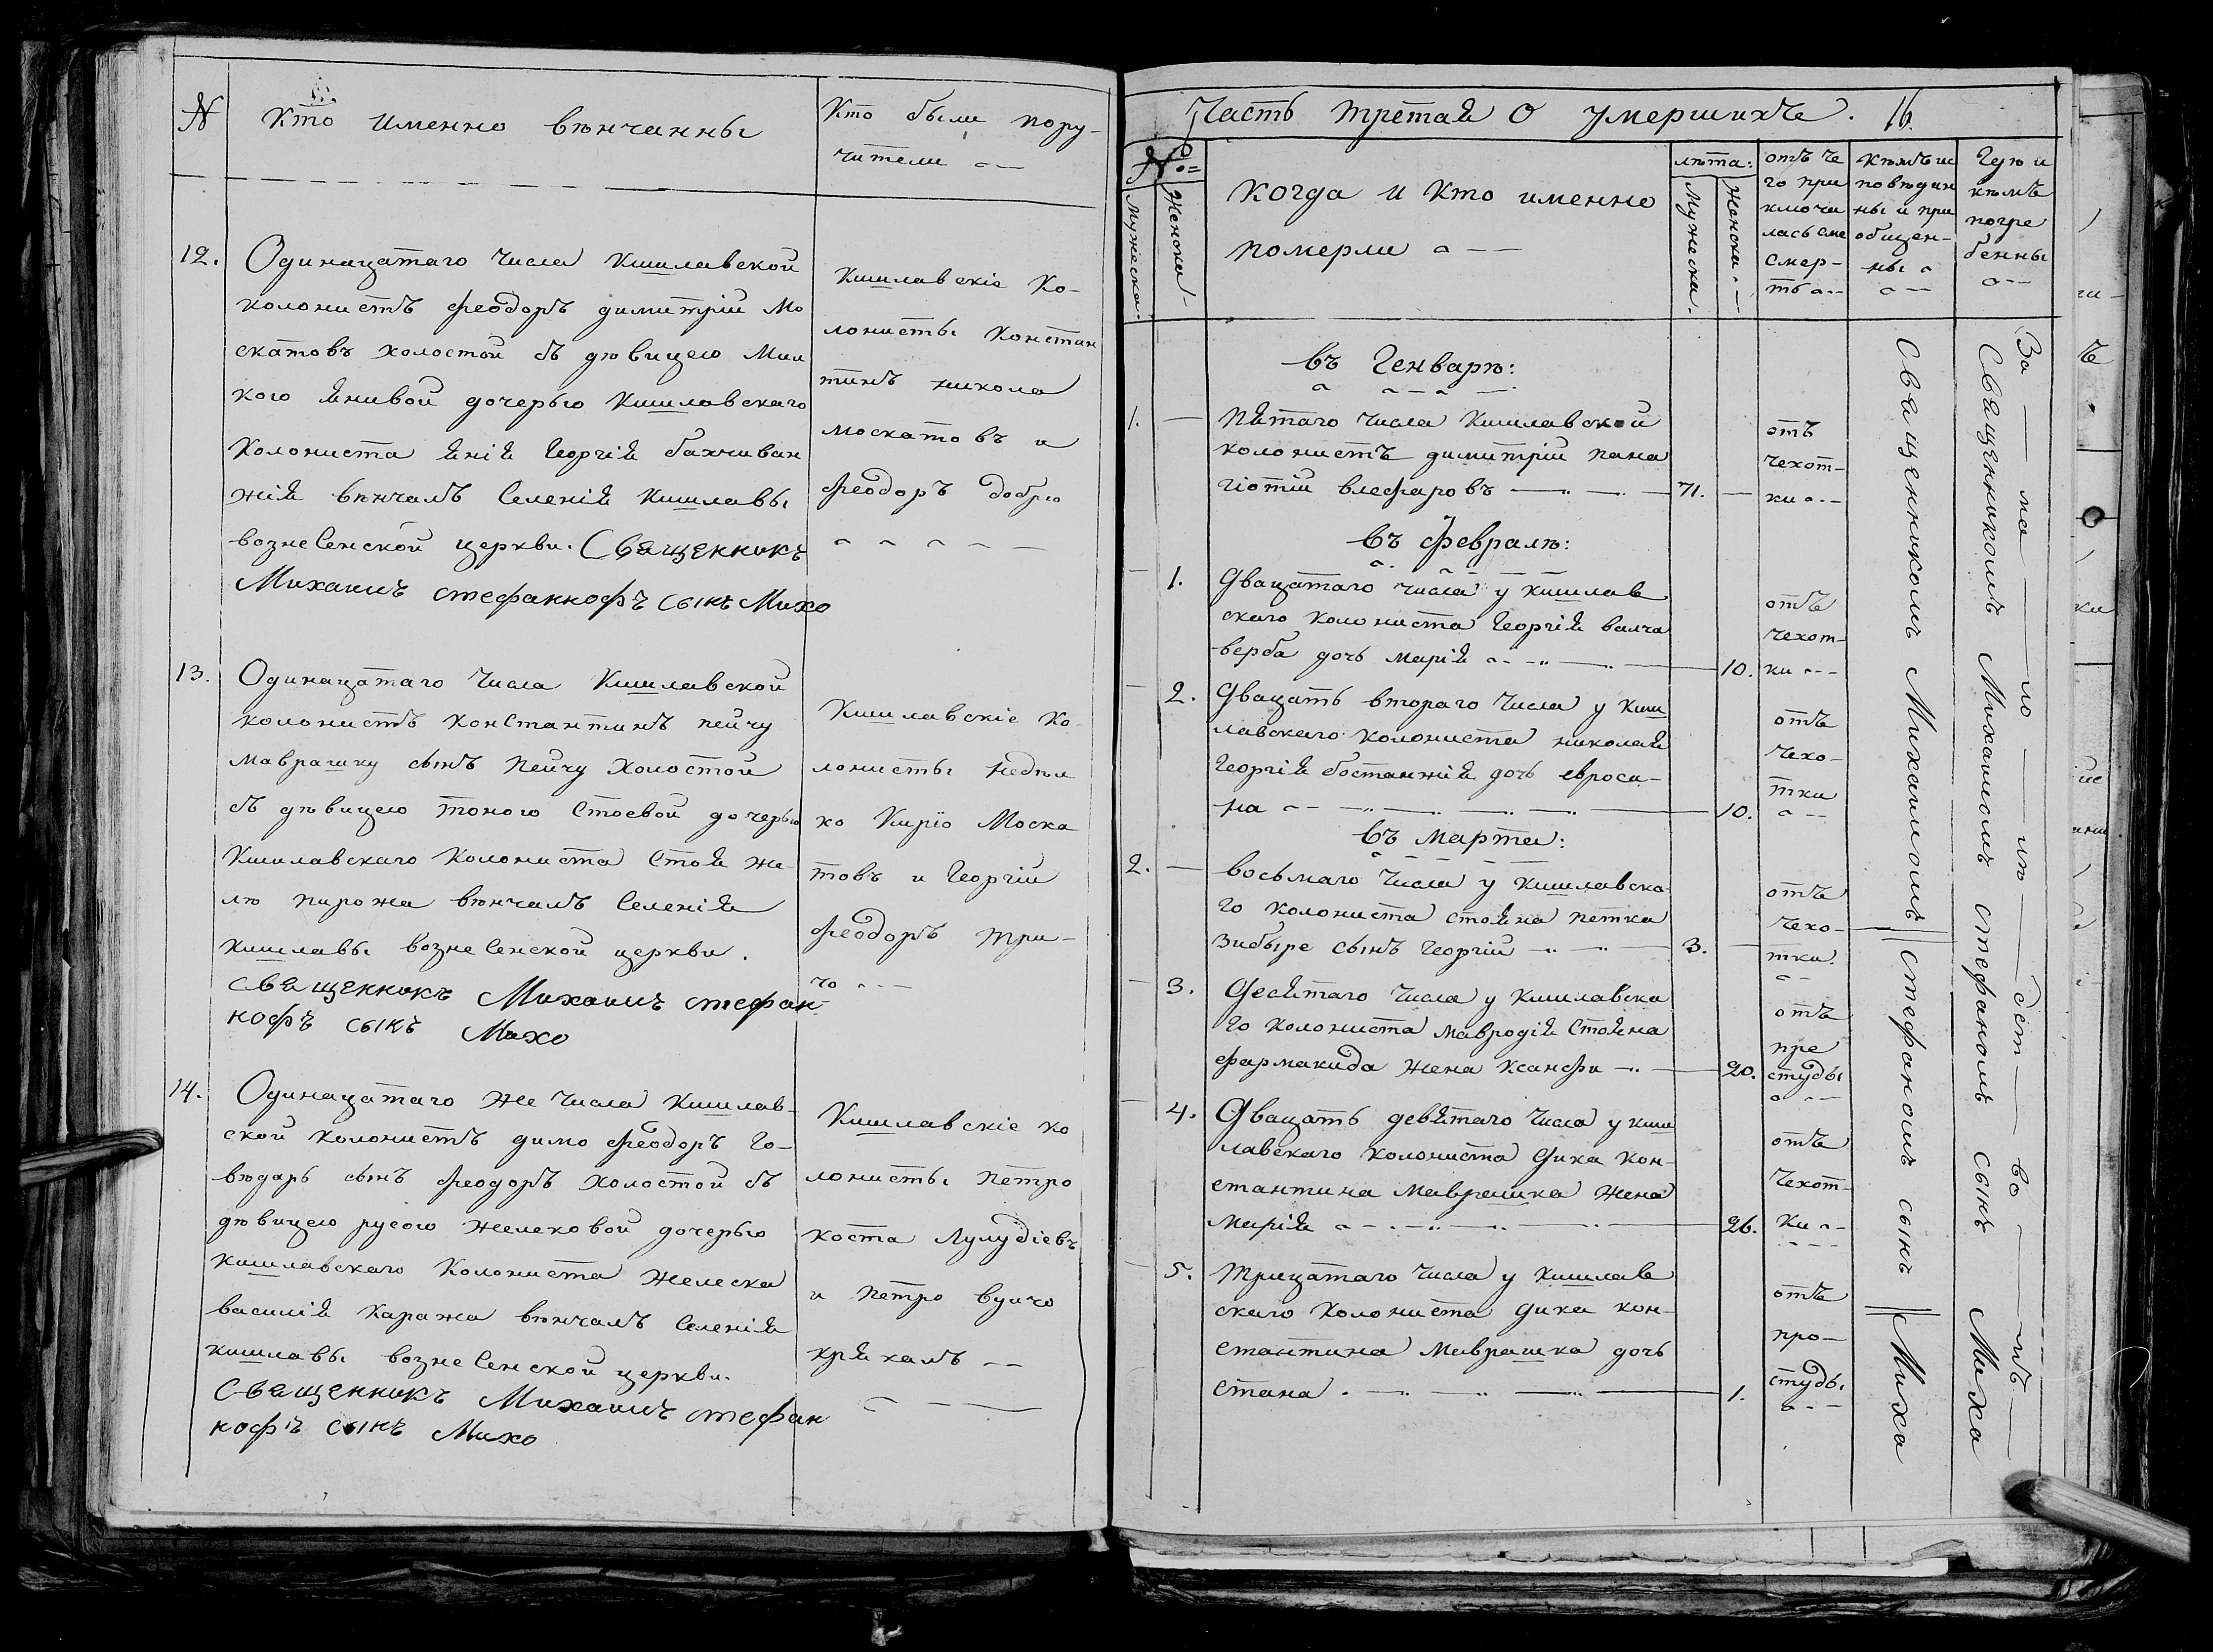 №
Кто именно вѣнчанны
Кто были пору-
чители
12.
Одинацатаго числа Кишлавской
колонистъ феодоръ димитрій мо
скатовъ холостой съ дѣвицею Мии
кою яневой дочерью Кишлавскаго
Колониста янія Георгія бахчиван
жія вѣнчалъ Селенія Кишлавы
вознеСенской церкви. Священникъ
Михаилъ стефанкофъ сынъ Михо
Кишлавскіе Ко-
лонисты Констан
тинъ никола
москатовъ и
феодоръ добрю
13.
Одинацатаго Числа Кишлавской
колонистъ КонСтантинъ пейчу
маврашку сынъ пейчу Холостой
съ дѣвицею тоною Стоевой дочерью
Кишлавскаго Колониста Стоя же-
лю пирожа вѣнчалъ Селенія
кишлавы вознеСенской церкви.
Священникъ Михаилъ стефан-
кофъ сынъ Михо
Кишлавскіе Ко-
лонисты недѣл
ко Кирїо Моска
товъ и Георгій
феодоръ три-
чо
14.
Одинацатаго же числа Кишлав-
ской колонистъ димо феодоръ Го-
вѣдаръ сынъ феодоръ Холостой съ
дѣвицею русою желековой дочерью
кишлавскаго Колониста желеска
василія каража вѣнчалъ Селенія
кишлавы вознеСенской церкви.
Священникъ Михаилъ стефан
кофъ сынъ Михо
Кишлавскіе ко
лонисты петро
коста Лулудіевъ
и петро вулчо
кряхалъ
Часть третая о умершихъ. 16.
№
Мужеска
Женска
когда и кто именно
померли
лѣта:
Мужеска.
Женска
отъ че
го при
ключи
лась
смер-
ть
кѣмъ ис
повѣдан
ны и при
общен-
ны
Гдѣ и
кѣмъ
погре
бенны
въ Генварѣ:
1.
пятаго числа Кишлавской
колонистъ димитрій пана
гіотій влефаровъ 71.
отъ
чехот-
ки
въ февралѣ:
1.
Двацатаго числа у кишлав
скаго Колониста Георгія валча
верба дочь марія 10.
отъ
чехот-
ки
2.
Двацать втораго числа у киш
лавскаго колониста николая
Георгія бостанжія дочь евроси-
на 10.
отъ
чехо-
тки
въ марта:
2.
восьмаго числа у кишлавска-
го колониста стояна петка
зибыре сынъ Георгій 3.
отъ
чехо-
тки.
3.
Десятаго числа у кишлавска
го Колониста мавродія Стояна
фармакида жена Ксанфи 20.
отъ
пре
студы
4.
Двацать девятаго числа у киш
лавскаго колониста Дика кон-
стантина маврашка жена
марія 26.
отъ
чехот-
ки
5.
Трицатаго числа у кишлав
скаго Колониста дика кон-
стантина маврашка дочь
стана 1.
отъ
про-
студы
Священникомъ Михаиломъ стефаномъ сынъ Миха
Священникомъ Михаиломъ стефаномъ сынъ Миха
За ма ло лѣ дст во мъ